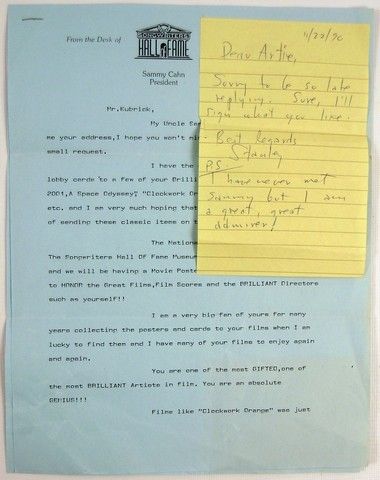 From the Desk of
SONGWRITERS
HALL of FAME
Sammy Cahn
President
11/22/90
Dear Artie,
Sorry to be so late
replying. Sure, I'll
sign what you like.
Best Regards
Stanley
P.S.
I have never met
Sammy but I am
a great, great
admirer!
Mr.Kubrick,
My Uncle
me your address,I hope you won't
small request.
I have the
lobby cards to a few of your Brilli
2001,A Space Odyssey," "Clockwork Or
etc. and I am very much hoping that
of sending these classic items on t
The Nationa
The Songwriters Hall Of Fame Museum
and we will be having a Movie Poste
to HONOR the Great Films,Film Scores and the BRILLIANT Directors
such as yourself!!
I am a very big fan of yours for many
years collecting the posters and cards to your films when I am
lucky to find them and I have many of your films to enjoy again
and again.
You are one of the most GIFTED,one of
the most BRILLIANT Artists in film. You are an absolute
GENIUS!!!
Films like "Clockwork Orange" was just